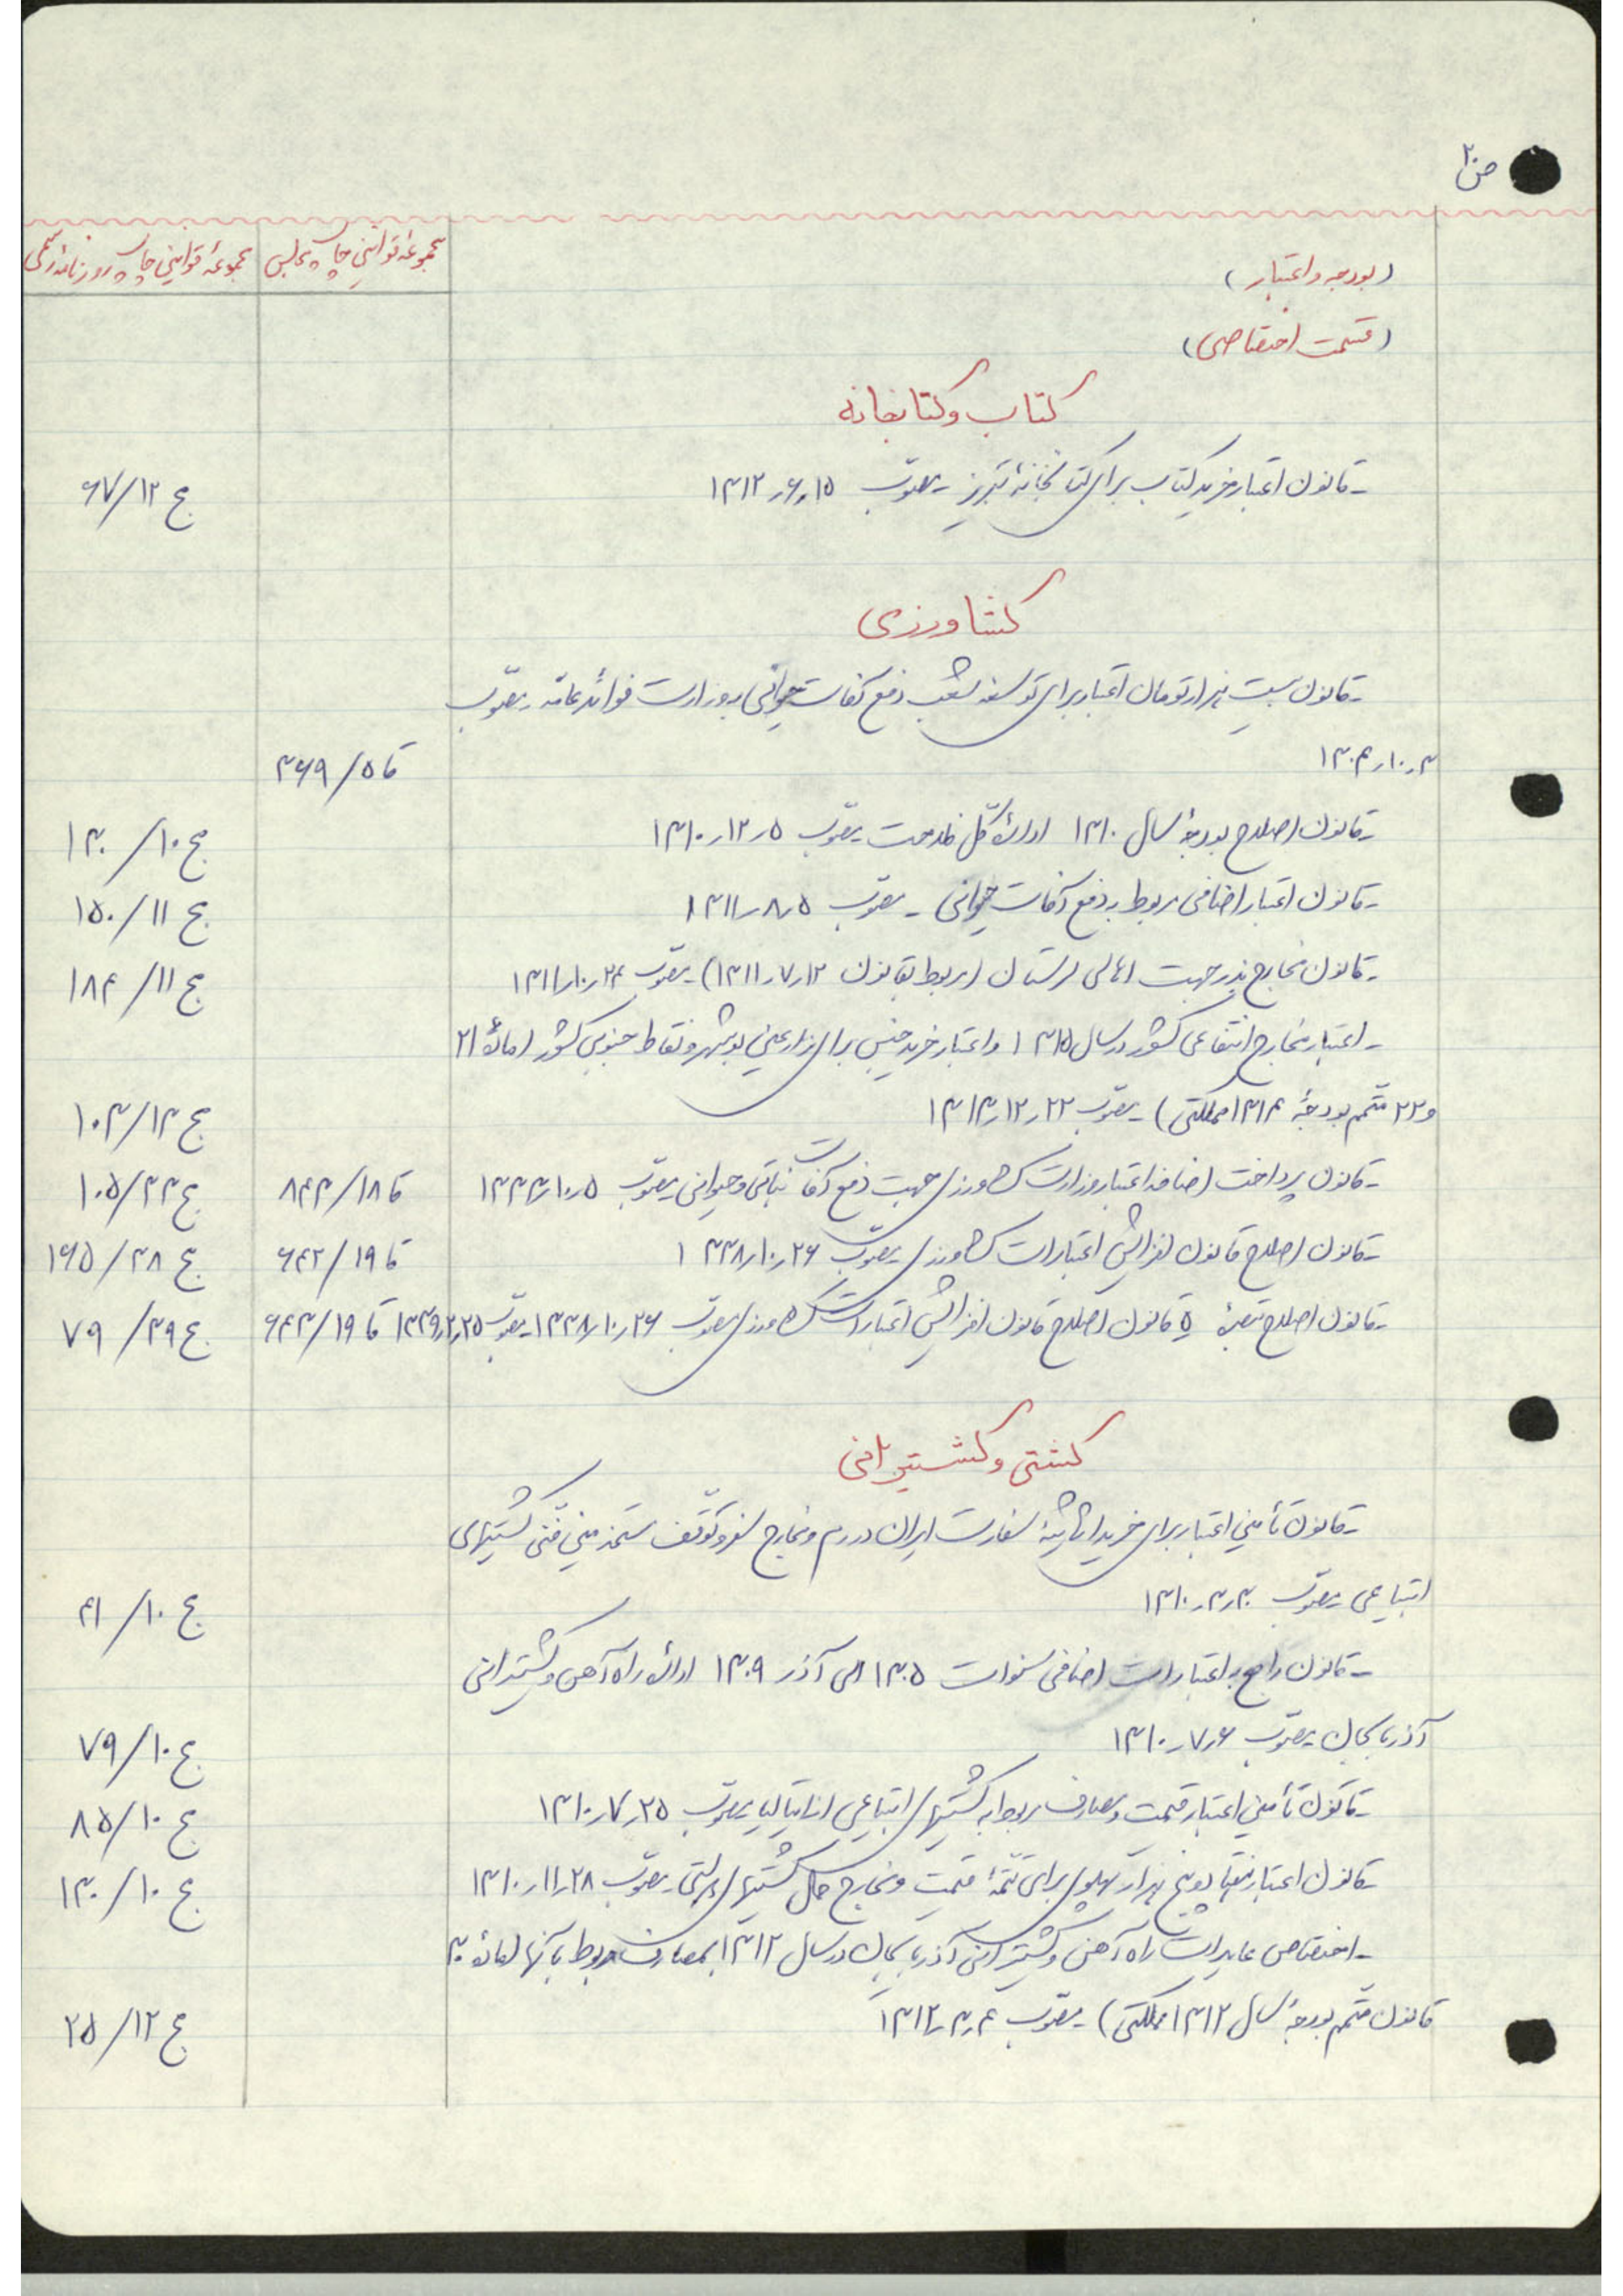 ص ۲۰
مجموعهٔ قوانین چاپ مجلس
مجموعهٔ قوانین چاپ روزنامهٔ رسمی
(بودجه و اعتبار)
(قسمت اختصاصی)
کتاب و کتابخانه
- قانون اعتبار خرید کتاب برای کتابخانهٔ تبریز - مصوب ۱۵ر۶ر۱۳۱۲ ج ۶۷/۱۲
کشاورزی
- قانون بیست هزار تومان اعتبار برای توسعه شعب دفع آفات حیوانی وزارت فوائد عامه - مصوب
۳ر۱۰ر۱۳۰۴ قا ۳۶۹/۵
- قانون اصلاح بودجهٔ سال ۱۳۱۰ ادارهٔ کل فلاحت مصوب ۵ر۱۲ر۱۳۱۰ ج ۱۳۰/۱۰
- قانون اعتبار اضافی مربوط به دفع آفات حیوانی - مصوب ۵ر۸ر۱۳۱۱ ج ۱۵۰/۱۱
- قانون مخارج بذر جهت اهالی لرستان (مربوط بقانون ۱۲ر۷ر۱۳۱۱) - مصوب ۲۴ر۱۰ر۱۳۱۱ ج ۱۸۴/۱۱
- اعتبار مخارج انتفاعی کشور در سال ۱۳۱۵ و اعتبار خرید جنس برای زارعین بوشهر و نقاط جنوبی کشور (مادهٔ ۲۱
و ۲۲ متمم بودجهٔ ۱۳۱۴ مملکتی) - مصوب ۲۲ر۱۲ر۱۳۱۳ ج ۱۰۳/۱۳
- قانون پرداخت اضافه اعتبار وزارت کشاورزی جهت دفع آفات نباتی و حیوانی مصوب ۵ر۱۰ر۱۳۳۳ قا ۸۴۳/۱۸ ج ۱۰۵/۳۳
- قانون اصلاح قانون افزایش اعتبارات کشاورزی مصوب ۲۶ر۱۰ر۱۳۳۸ قا ۶۴۲/۱۹ ج ۱۶۵/۳۸
- قانون اصلاح تبصرهٔ ۵ قانون اصلاح قانون افزایش اعتبارات کشاورزی مصوب ۲۶ر۱۰ر۱۳۳۸ - مصوب ۲۵ر۲ر۱۳۳۹ قا ۶۴۳/۱۹ ج ۷۹/۳۹
کشتی و کشتیرانی
- قانون تأمین اعتبار برای خرید اثاثیهٔ سفارت ایران در رم و مخارج سفر و توقف مستخدمین فنی کشتیهای
ابتیاعی مصوب ۳۰ر۳ر۱۳۱۰ ج ۴۱/۱۰
- قانون راجع به اعتبارات اضافی سنوات ۱۳۰۵ الی آذر ۱۳۰۹ ادارهٔ راه آهن و کشتیرانی
آذربایجان - مصوب ۶ر۷ر۱۳۱۰ ج ۷۹/۱۰
- قانون تأمین اعتبار قیمت و مصارف مربوط به کشتیهای ابتیاعی از ایتالیا مصوب ۲۵ر۷ر۱۳۱۰ ج ۸۵/۱۰
- قانون اعتبار هفتاد و پنج هزار پهلوی برای تتمهٔ قیمت و مخارج حمل کشتیهای دولتی - مصوب ۲۸ر۱۱ر۱۳۱۰ ج ۱۳۰/۱۰
- اختصاص عایدات راه آهن و کشتیرانی آذربایجان در سال ۱۳۱۲ بمصارف مربوط بآنها (مادهٔ ۳۰
قانون متمم بودجهٔ سال ۱۳۱۲ مملکتی) - مصوب ۴ر۳ر۱۳۱۲ ج ۲۵/۱۲